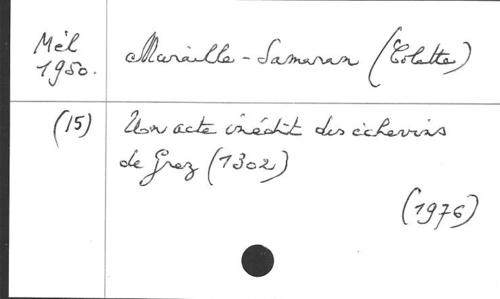 Mél
1950.
Muraille-Samaran (Colette)
(15)
Un acte inédit des échevins
de Grez (1302)
(1976)